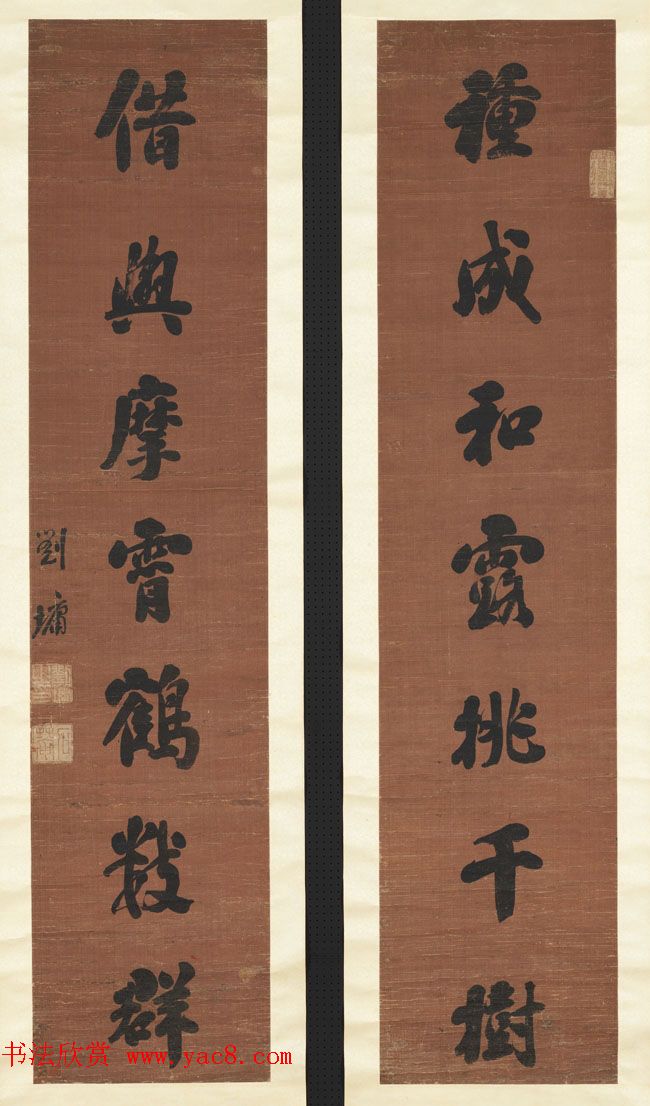 種成和露桃千樹
借與摩霄鶴數群
劉墉
书法欣赏 www.yac8.com